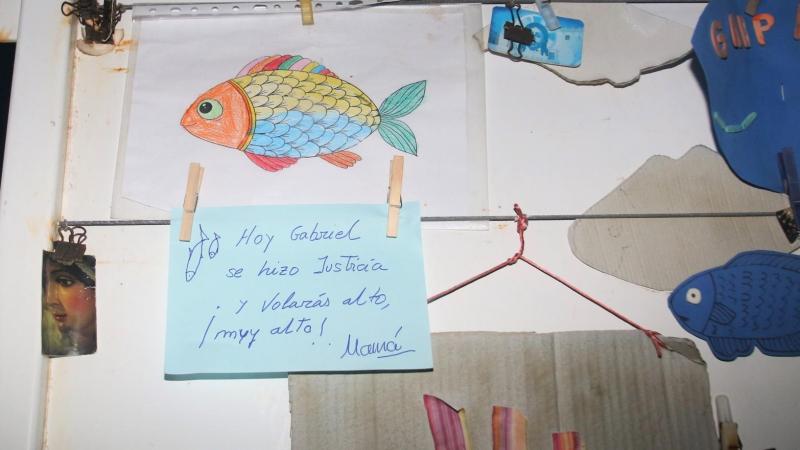 GMP
Hoy Gabriel
se hizo Justicia
. y Volarás alto,
¡muy alto!
Mamá